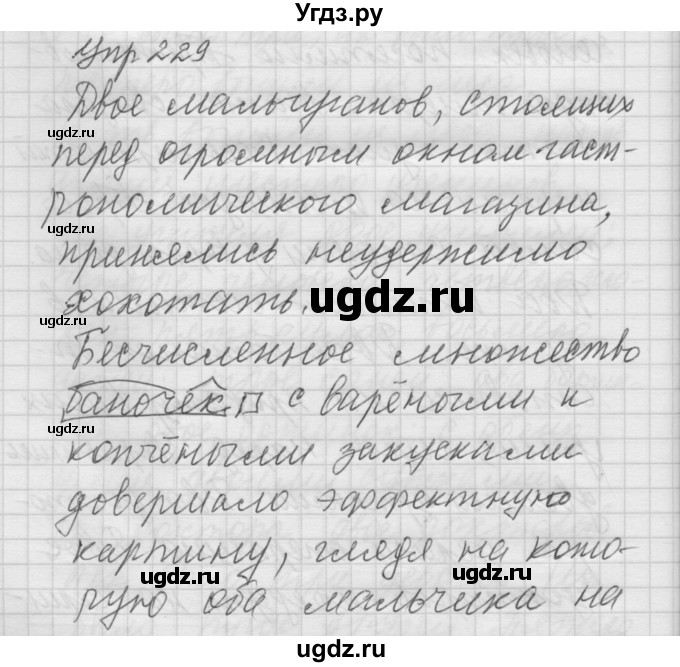 Угдз.ру
Упр 229
Двое мальчуганов, стоящих
ugdz.ru
перед огромным окном гаст-
рономического магазина,
ugdz.ru
принялись неудержимо
хохотать. ugdz.ru
ugdz.ru
Бесчисленное множество
баночек с варёными и
ugdz.ru
копчёными закусками
довершало эффектную
ugdz.ru
картину, глядя на кото-
ugdz.ru ugdz.ru
рую оба мальчика на
ugdz.ru